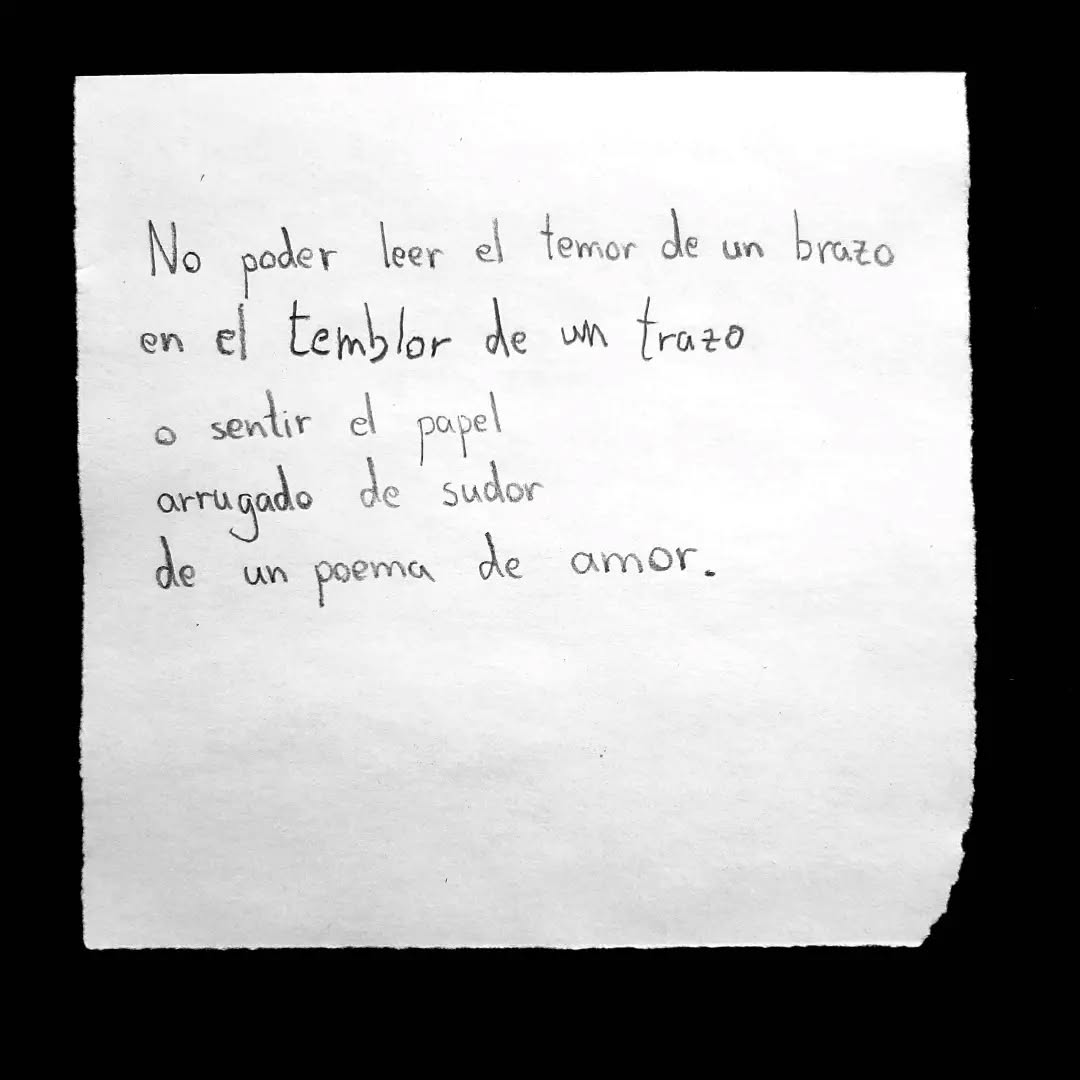 No poder leer el temor de un brazo
en el temblor de un trazo
o sentir el papel
arrugado de sudor
de un poema de amor.